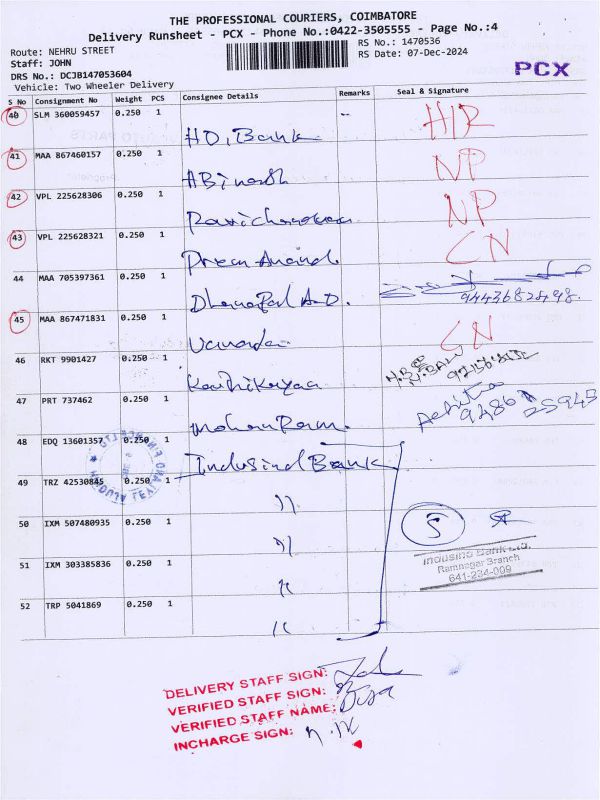 THE PROFESSIONAL COURIERS, COIMBATORE
Delivery Runsheet - PCX - Phone No.:0422-3505555 - Page No.:4
Route: NEHRU STREET
RS No.: 1470536
Staff: JOHN
RS Date: 07-Dec-2024
DRS No.: DCJB147053604
PCX
Vehicle: Two Wheeler Delivery
S No Consignment No Weight PCS Consignee Details Remarks Seal & Signature
40 SLM 360059457 0.250 1 HD. Bank -- H/R
41 MAA 867460157 0.250 1 ABinash NP
42 VPL 225628306 0.250 1 Ravichandran NP
43 VPL 225628321 0.250 1 Prem Anand CN
44 MAA 705397361 0.250 1 Dhanapal A-D. 9443682498
45 MAA 867471831 0.250 1 Vanada CN
46 RKT 9901427 0.250 1 Karthikeyan N.BALU
47 PRT 737462 0.250 1 mohan Ram. 94867 25945
48 EDQ 13601357 0.250 1 Indusind Bank
49 TRZ 42530845 0.250 1 "
50 IXM 507480935 0.250 1 " 5
51 IXM 303385836 0.250 1 "
Indusind Bank Ltd.
Ramnagar Branch
641-234-009
52 TRP 5041869 0.250 1 "
DELIVERY STAFF SIGN:
VERIFIED STAFF SIGN:
VERIFIED STAFF NAME:
INCHARGE SIGN: